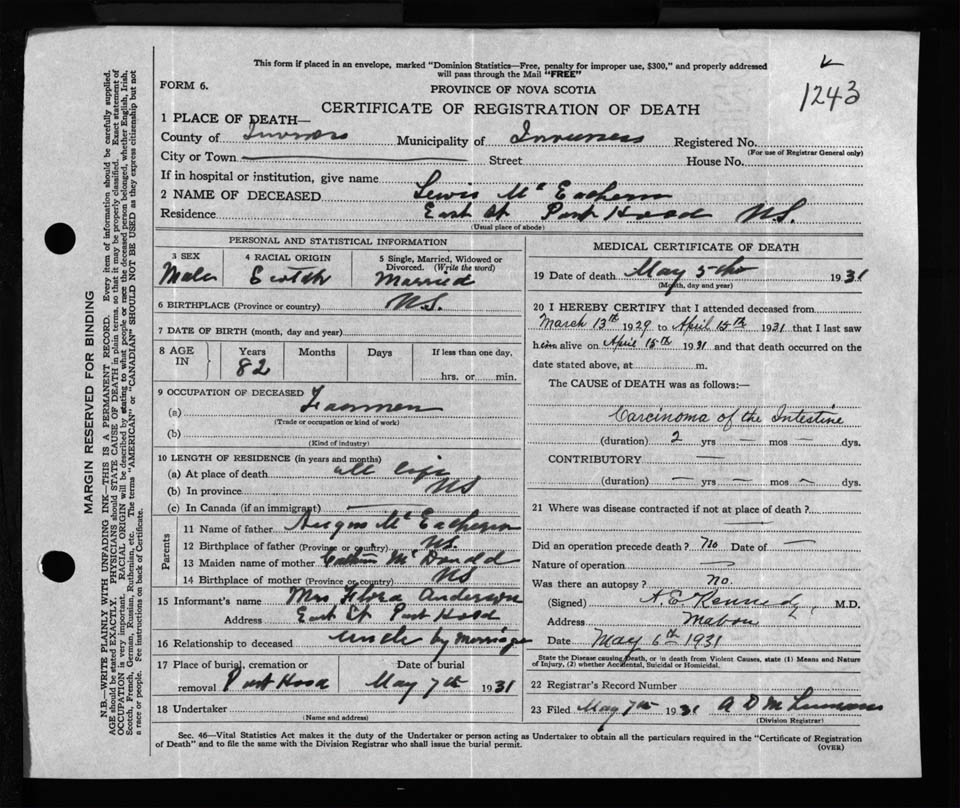 This form if placed in an envelope, marked "Dominion Statistics—Free, penalty for improper use, $300," and properly addressed
will pass through the Mail "FREE"
FORM 6.
PROVINCE OF NOVA SCOTIA
1243
CERTIFICATE OF REGISTRATION OF DEATH
1 PLACE OF DEATH—
County of Inverness Municipality of Inverness Registered No.
(For use of Registrar General only)
City or Town Street House No.
If in hospital or institution, give name
2 NAME OF DECEASED Lewis McEachern
Residence East St Port Hood N.S.
(Usual place of abode)
PERSONAL AND STATISTICAL INFORMATION
3 SEX 4 RACIAL ORIGIN 5 Single, Married, Widowed or Divorced. (Write the word)
Male Scotch Married
6 BIRTHPLACE (Province or country) N.S.
7 DATE OF BIRTH (month, day and year)
8 AGE IN Years Months Days If less than one day,
82 hrs. or min.
9 OCCUPATION OF DECEASED
(a) Farmer
(Trade or occupation or kind of work)
(b)
(Kind of industry)
10 LENGTH OF RESIDENCE (in years and months)
(a) At place of death all life
(b) In province NS
(c) In Canada (if an immigrant) —
Parents
11 Name of father Angus McEachern
12 Birthplace of father (Province or country) NS.
13 Maiden name of mother
14 Birthplace of mother (Province or country) NS
15 Informant's name Mrs Flora Anderson
Address East St Port Hood
16 Relationship to deceased uncle by Marriage
17 Place of burial, cremation or removal Port Hood Date of burial May 7th 1931
18 Undertaker
(Name and address)
MEDICAL CERTIFICATE OF DEATH
19 Date of death May 5th 1931
(Month, day and year)
20 I HEREBY CERTIFY that I attended deceased from
March 13th 1929 to April 15th 1931 that I last saw
him alive on April 15th 1931 and that death occurred on the
date stated above, at m.
The CAUSE of DEATH was as follows:—
Carcinoma of the Intestine
(duration) 2 yrs — mos — dys.
CONTRIBUTORY —
(duration) — yrs — mos — dys.
21 Where was disease contracted if not at place of death?
Did an operation precede death? no Date of —
Nature of operation —
Was there an autopsy? no.
(Signed) A. E. Kennedy, M.D.
Address Mabou
Date May 6th 1931
State the Disease causing Death, or in death from Violent Causes, state (1) Means and Nature
of Injury, (2) whether Accidental, Suicidal or Homicidal.
22 Registrar's Record Number
23 Filed May 7th 1931 A D M
(Division Registrar)
Sec. 46—Vital Statistics Act makes it the duty of the Undertaker or person acting as Undertaker to obtain all the particulars required in the "Certificate of Registration
of Death" and to file the same with the Division Registrar who shall issue the burial permit.
(OVER)
MARGIN RESERVED FOR BINDING
N.B.—WRITE PLAINLY WITH UNFADING INK—THIS IS A PERMANENT RECORD. Every item of information should be carefully supplied.
AGE should be stated EXACTLY. PHYSICIANS should STATE CAUSE OF DEATH in plain terms, so that it may be properly classified. Exact statement of
OCCUPATION is very important. RACIAL ORIGIN will be described by stating to what people or race the deceased person belonged, whether English, Irish,
Scotch, French, German, Russian, Ruthenian, etc. The terms "AMERICAN" or "CANADIAN" SHOULD NOT BE USED as they express citizenship but not
a race or people. See instructions on back of Certificate.